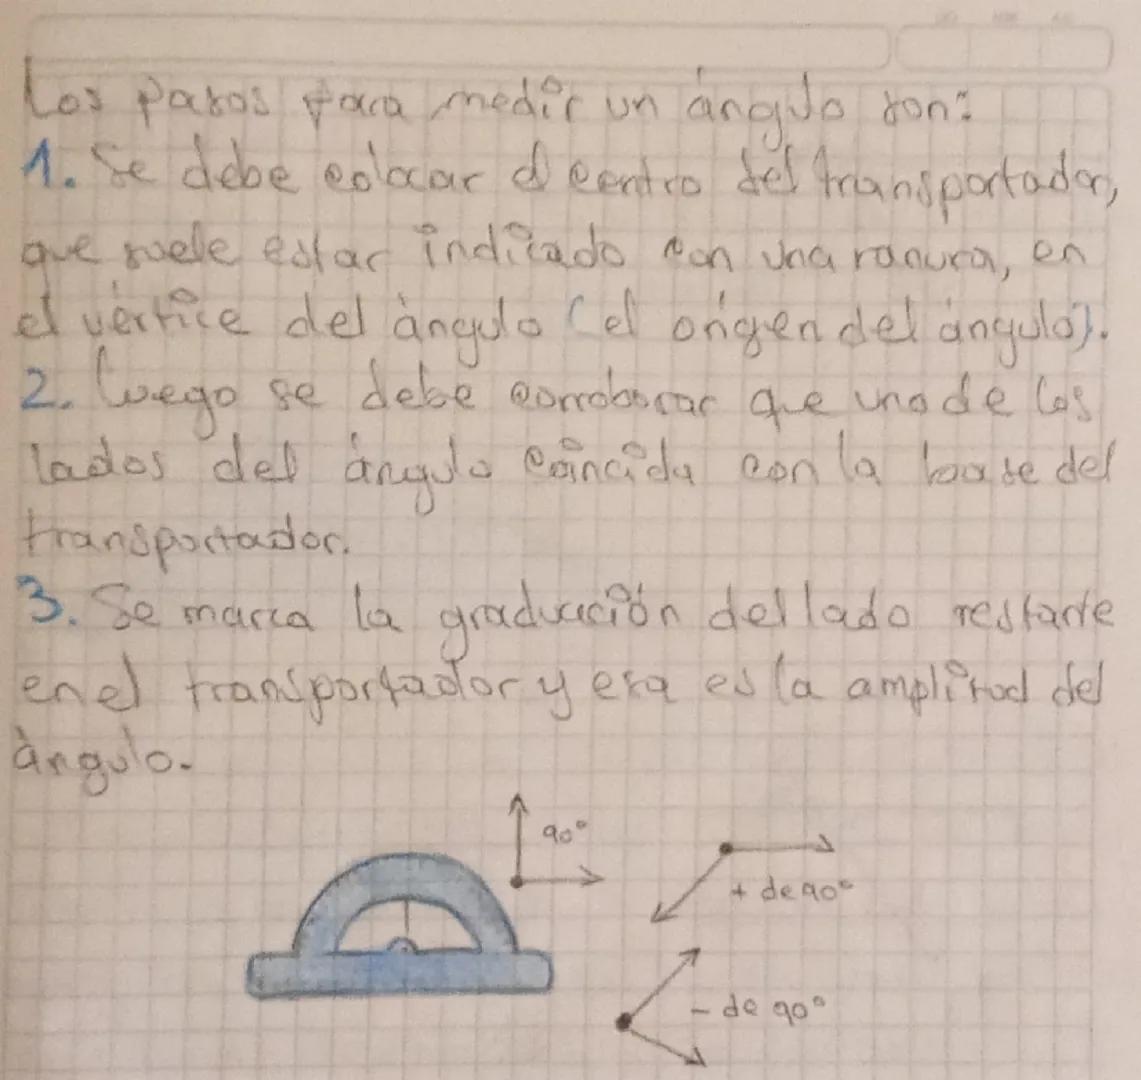 Los pasos para medir un ángulo son:
1. Se debe colocar el centro del transportador,
que suele estar indicado con una ranura, en
el vértice del ángulo (el origen del ángulo).
2. Luego se debe corroborar que uno de los
lados del ángulo coincida con la base del
transportador.
3. Se marca la graduación del lado restante
en el transportador y esa es la amplitud del
ángulo.
90°
+ de 90°
- de 90°